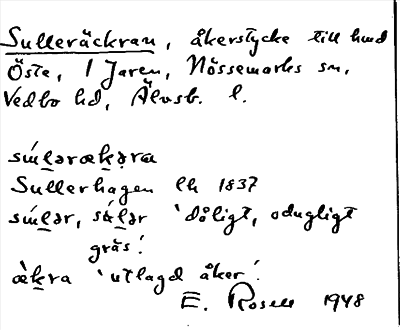 Sulleräckran, åkerstycke till hmd
Öste, 1 Jaren, Nössemarks sn,
Vedbo hd, Älvsb. l.
súl̲əræk̲ə̣ra
Sullerhagen lh 1837
súl̲ər, sál̲ər 'dåligt, odugligt
gräs'.
æ̀k̲ra 'utlagd åker'.
E. Rosell 1948